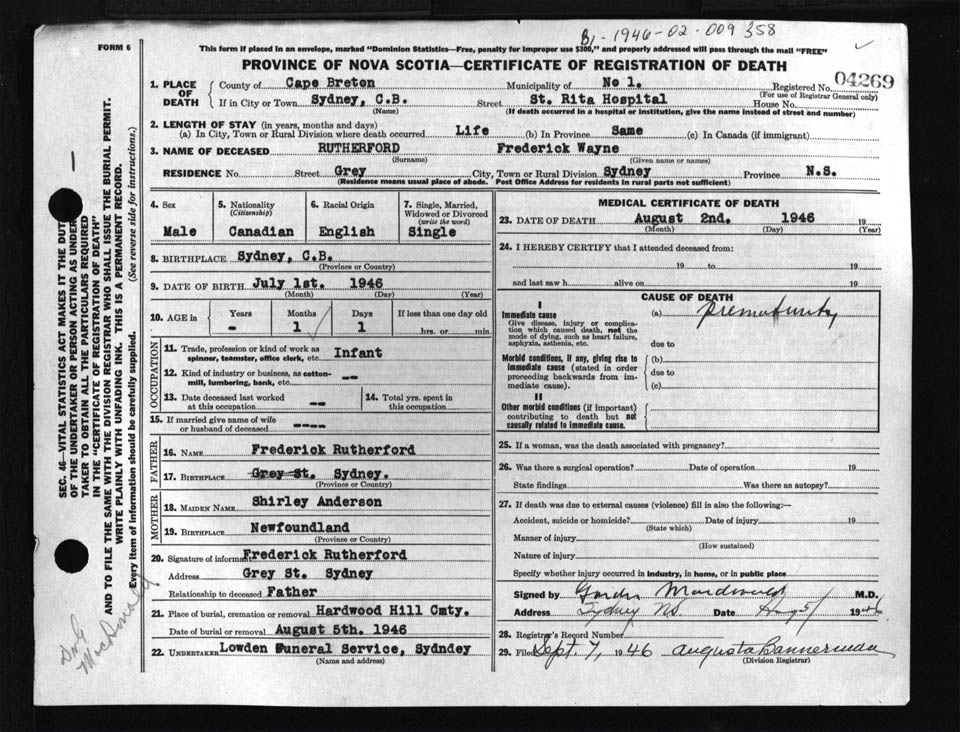 B1-1946-02-009358
FORM 6
This form if placed in an envelope, marked "Dominion Statistics—Free, penalty for improper use $300," and properly addressed will pass through the mail "FREE"
PROVINCE OF NOVA SCOTIA—CERTIFICATE OF REGISTRATION OF DEATH
04269
1. PLACE OF DEATH County of Cape Breton Municipality of No 1. Registered No.
(For use of Registrar General only)
If in City or Town Sydney, C.B. Street St. Rita Hospital House No.
(Name) (If death occurred in a hospital or institution, give the name instead of street and number)
2. LENGTH OF STAY (in years, months and days)
(a) In City, Town or Rural Division where death occurred Life (b) In Province Same (c) In Canada (if immigrant)
3. NAME OF DECEASED RUTHERFORD Frederick Wayne
(Surname) (Given name or names)
RESIDENCE No. Street Grey City, Town or Rural Division Sydney Province N.S.
(Residence means usual place of abode. Post Office Address for residents in rural parts not sufficient)
4. Sex 5. Nationality (Citizenship) 6. Racial Origin 7. Single, Married, Widowed or Divorced (write the word)
Male Canadian English Single
8. BIRTHPLACE Sydney, C.B.
(Province or Country)
9. DATE OF BIRTH July 1st. 1946
(Month) (Day) (Year)
10. AGE in Years Months Days If less than one day old
- 1 1 hrs. or min.
OCCUPATION
11. Trade, profession or kind of work as spinner, teamster, office clerk, etc. Infant
12. Kind of industry or business, as cotton-mill, lumbering, bank, etc. --
13. Date deceased last worked at this occupation -- 14. Total yrs. spent in this occupation
15. If married give name of wife or husband of deceased ----
FATHER
16. NAME Frederick Rutherford
17. BIRTHPLACE Grey St. Sydney.
(Province or Country)
MOTHER
18. MAIDEN NAME Shirley Anderson
19. BIRTHPLACE Newfoundland
(Province or Country)
20. Signature of informant Frederick Rutherford
Address Grey St. Sydney
Relationship to deceased Father
21. Place of burial, cremation or removal Hardwood Hill Cmty.
Date of burial or removal August 5th. 1946
22. UNDERTAKER Lowden Funeral Service, Sydndey
(Name and address)
MEDICAL CERTIFICATE OF DEATH
23. DATE OF DEATH August 2nd. 1946 19
(Month) (Day) (Year)
24. I HEREBY CERTIFY that I attended deceased from:
19 to 19
and last saw h alive on 19
CAUSE OF DEATH
I
Immediate cause (a) prematurity
Give disease, injury or complication which caused death, not the mode of dying, such as heart failure, asphyxia, asthenia, etc.
due to
Morbid conditions, if any, giving rise to immediate cause (stated in order proceeding backwards from immediate cause).
(b)
due to
(c)
II
Other morbid conditions (if important) contributing to death but not causally related to immediate cause.
25. If a woman, was the death associated with pregnancy?
26. Was there a surgical operation? Date of operation 19
State findings Was there an autopsy?
27. If death was due to external causes (violence) fill in also the following:—
Accident, suicide or homicide? Date of injury 19
(State which)
Manner of injury
(How sustained)
Nature of injury
Specify whether injury occurred in industry, in home, or in public place
Signed by M.D.
Address Sydney NS Date Aug 5/ 1946
28. Registrar's Record Number
29. Filed Sept. 7, 1946 Augusta Bannerman
(Division Registrar)
SEC. 46—VITAL STATISTICS ACT MAKES IT THE DUTY
OF THE UNDERTAKER OR PERSON ACTING AS UNDER-
TAKER TO OBTAIN ALL THE PARTICULARS REQUIRED
IN THE "CERTIFICATE OF REGISTRATION OF DEATH"
AND TO FILE THE SAME WITH THE DIVISION REGISTRAR WHO SHALL ISSUE THE BURIAL PERMIT.
WRITE PLAINLY WITH UNFADING INK. THIS IS A PERMANENT RECORD.
Every item of information should be carefully supplied. (See reverse side for instructions.)
MacDonald